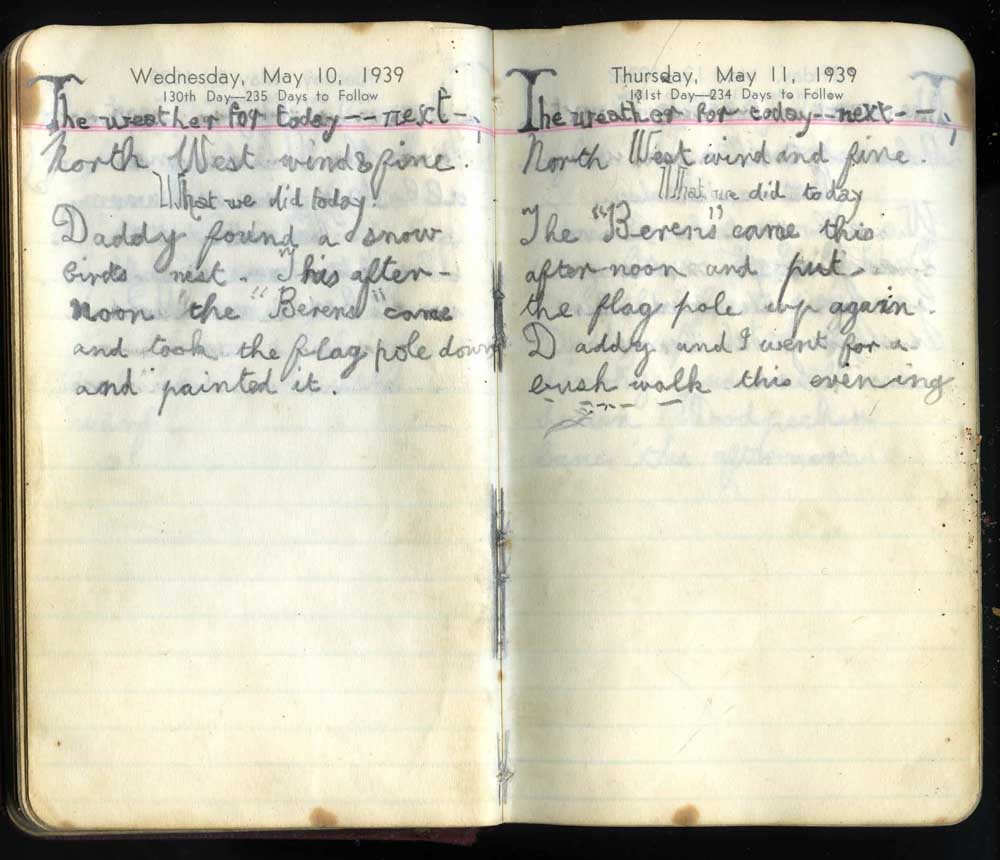 Wednesday, May 10, 1939
130th Day—235 Days to Follow
The weather for today -- next - ;
North West wind & fine.
What we did today.
Daddy found a snow
birds nest. This after-
noon "the "Berens" came
and took the flag pole down
and painted it.
Thursday, May 11, 1939
131st Day—234 Days to Follow
The weather for today -- next - - ;
North West wind and fine.
What we did today
The "Berens" came this
afternoon and put
the flag pole up again.
Daddy and I went for a
bush walk this evening